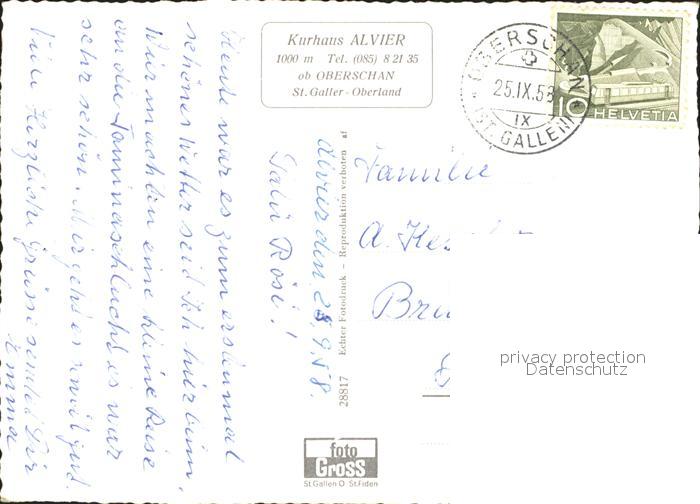 Kurhaus ALVIER
1000 m Tel. (085) 8 21 35
ob OBERSCHAN
St. Galler-Oberland
OBERSCHAN
25.IX.58
IX
(ST. GALLEN)
10 HELVETIA
Alvier den 25.9.58.
Salü Rösi!
Heute war es zum erstenmal
schönes Wetter seid ich hier bin,
Wir machten eine kleine Reise
an die Taminaschlucht es war
sehr schön. Mir geht es soweit gut.
Viele Herzliche Grüsse sendet Dir
Emma
28817 Echter Fotodruck – Reproduktion verboten af
Familie
A.
privacy protection
Datenschutz
foto
Gross
St. Gallen O St. Fiden